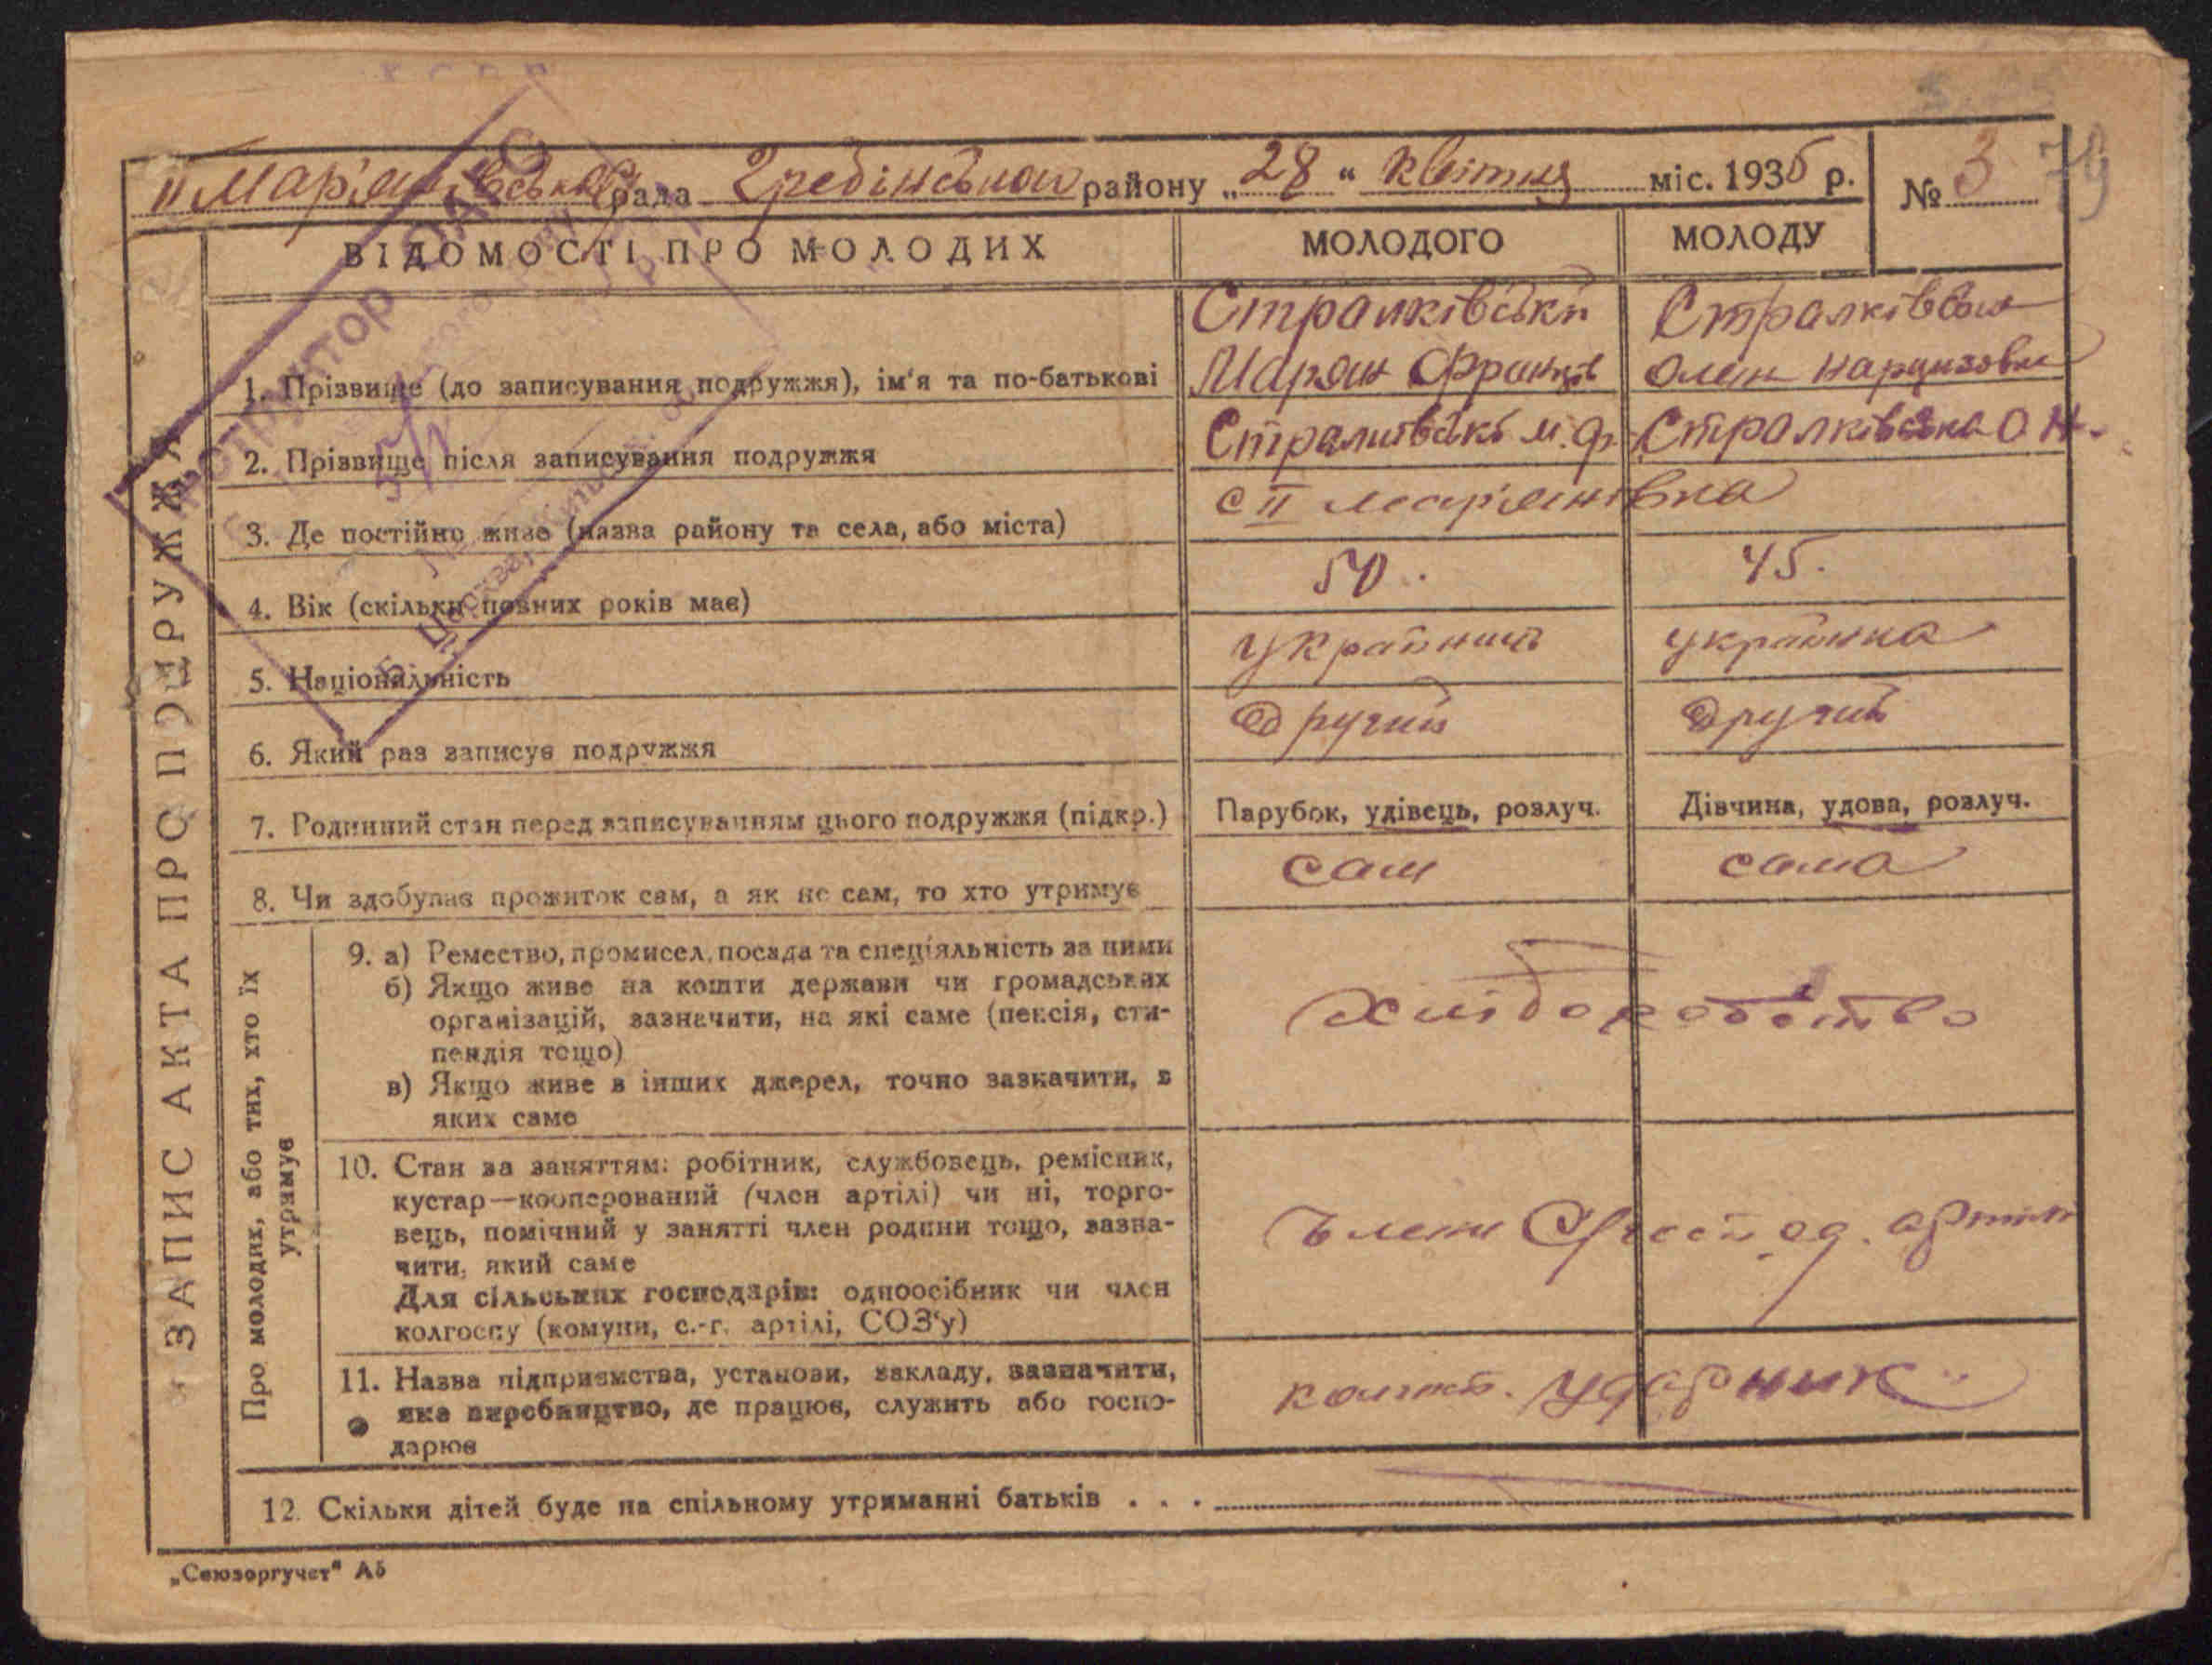 II Мар'янівська рада Гребінського району „28“ квітня міс. 1935 р. № 3 79
ВІДОМОСТІ ПРО МОЛОДИХ МОЛОДОГО МОЛОДУ
ЗАПИС АКТА ПРО ПОДРУЖЖЯ
1. Прізвище (до записування подружжя), ім'я та по-батькові
Стралківські
Марян Франців
Стралківська
Олена Нарцизовна
2. Прізвище після записування подружжя Стралківські М. Ф. Стралківська О Н.
3. Де постійно живе (назва району та села, або міста) с II Мар'янівка
4. Вік (скільки повних років має) 50. 45.
5. Національність українець українка
6. Який раз записує подружжя другий другий
7. Родинний стан перед записуванням цього подружжя (підкр.) Парубок, удівець, розлуч. Дівчина, удова, розлуч.
8. Чи здобуває прожиток сам, а як не сам, то хто утримує сам сама
Про молодих, або тих, хто їх
утримує
9. а) Ремество, промисел, посада та спеціяльність за ними
б) Якщо живе на кошти держави чи громадських
організацій, зазначити, на які саме (пенсія, сти-
пендія тощо)
в) Якщо живе в інших джерел, точно зазначити, з
яких саме
хліборобство
10. Стан за заняттям: робітник, службовець, ремісник,
кустар—кооперований (член артілі) чи ні, торго-
вець, помічний у занятті член родини тощо, зазна-
чити, який саме
Для сільських господарів: одноосібник чи член
колгоспу (комуни, с.-г. артілі, СОЗ'у)
члени артіл
11. Назва підприємства, установи, закладу, зазначити,
яке виробництво, де працює, служить або госпо-
дарює
Ударник
12. Скільки дітей буде на спільному утриманні батьків . . .
„Союзоргучет“ А5